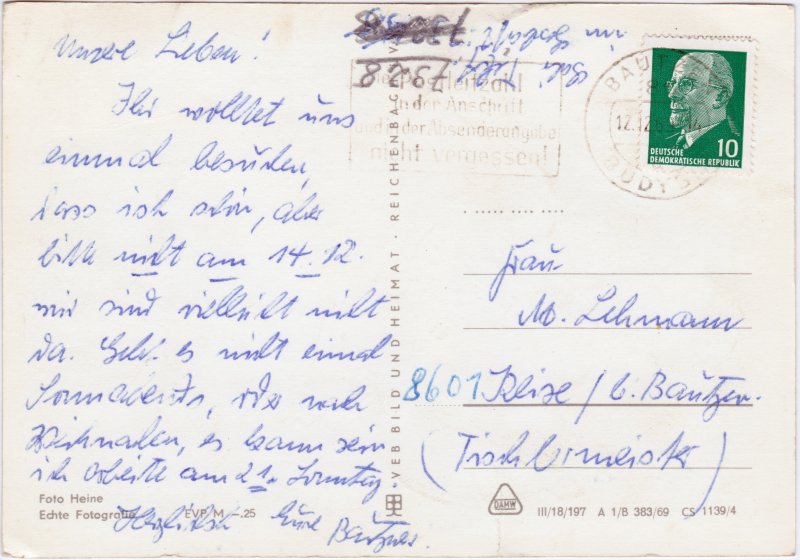 Unsere Lieben!
Ihr wolltet uns
einmal besuchen,
dass ist schön, aber
bitte nicht am 14.12.
wir sind vielleicht nicht
da. Geht es nicht einmal
Sonnabends, oder nach
Weihnachten, es kann sein
ich arbeite am 21. Sonntag.
Herzlichst Eure Bautzner
Foto Heine
Echte Fotografie EVP M -.25
VEB BILD UND HEIMAT · REICHENBACH V
7328
Die Postleitzahl
in der Anschrift
und in der Absenderangabe
nicht vergessen!
BAUTZEN
12.12.69
BUDYŠIN
DEUTSCHE
DEMOKRATISCHE REPUBLIK 10
Frau
M. Lehmann
8601 Kleise / b. Bautzen.
(Tischlermeister)
DAMW
III/18/197 A 1/B 383/69 CS 1139/4